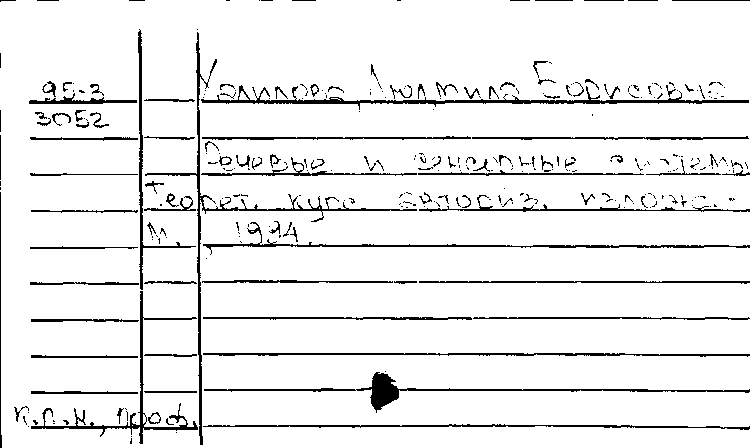 95-3 Халилова Людмила Борисовна
3052
Речевые и сенсорные системы
Теорет. курс авториз. излож. -
М., 1994.
к.п.н., проф.